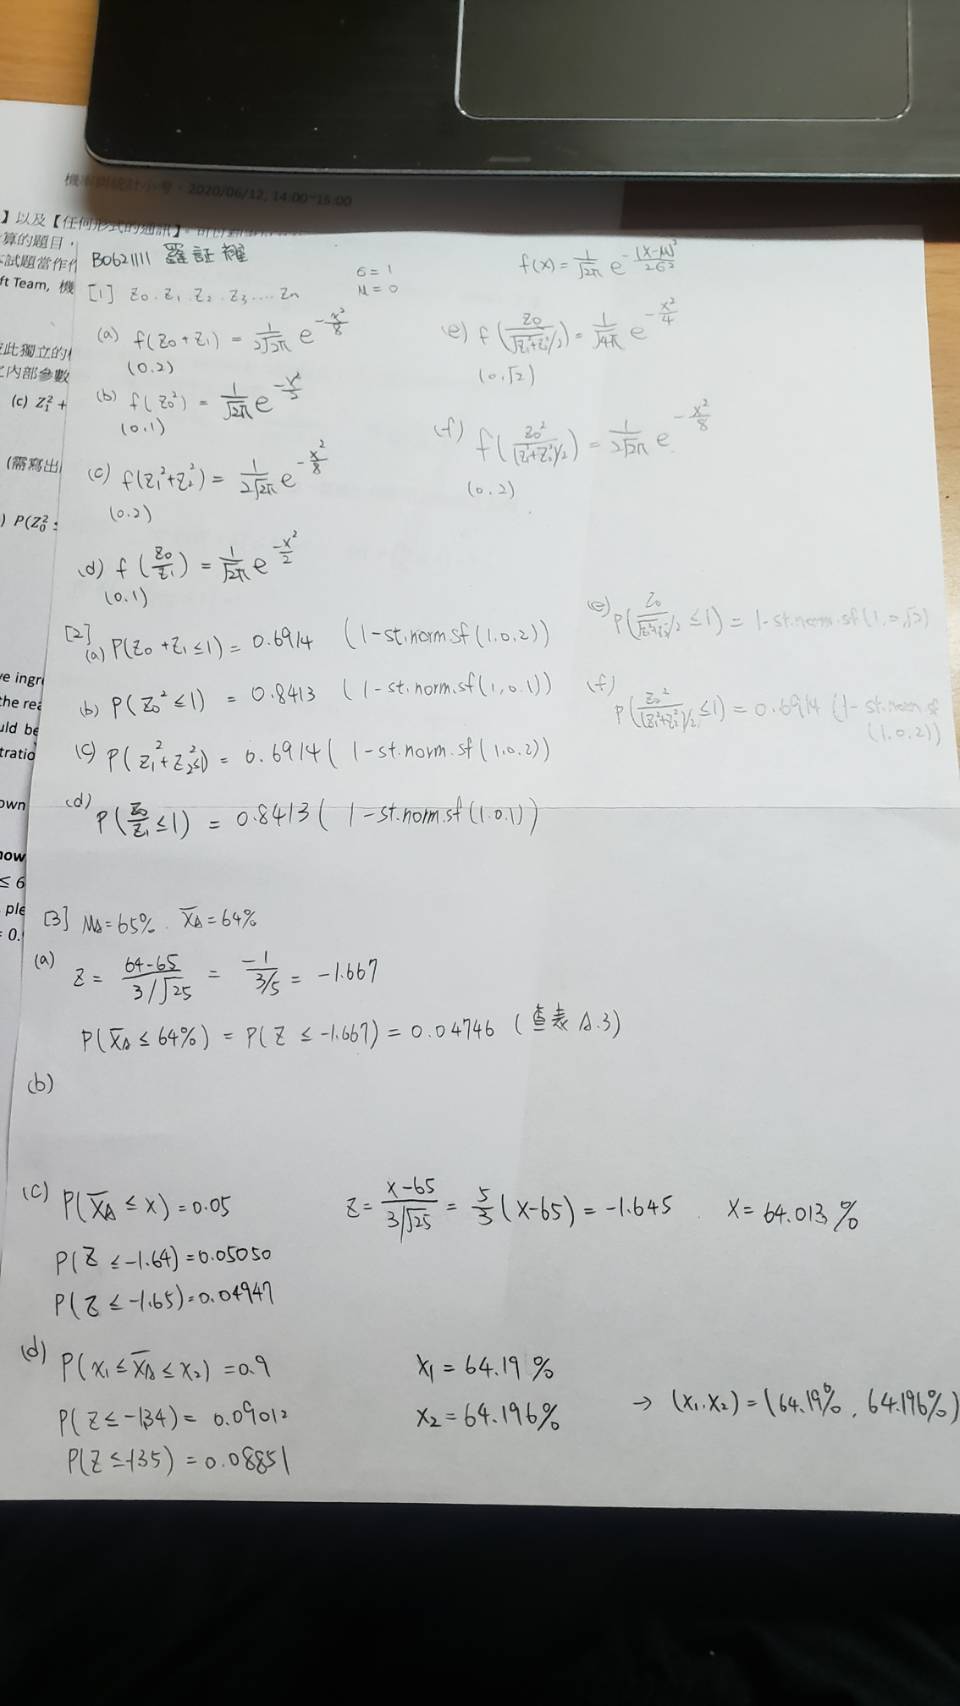 機率與統計小考,2020/06/12, 14:00~15:00
】以及【任何形式的通訊】。
算的題目,
試題當作作
ft Team, 機
此獨立的
之內部參數
(c) Z₁² +
(需寫出
) P(Z₀² ≤
ve ingre
the rea
uld be
tratio
own
now
≤ 6
ple
= 0.
B0621111 羅証耀
σ = 1
μ = 0
f(x) = 1/√2π e^-(x-μ)²/2σ²
[1] Z₀, Z₁, Z₂, Z₃ .... Zn
(a) f(Z₀+Z₁) = 1/2√2π e^-x²/8
(0.2)
(b) f(Z₀²) = 1/√2π e^-x²/2
(0.1)
(c) f(Z₁²+Z₂²) = 1/2√2π e^-x²/8
(0.2)
(d) f(Z₀/Z₁) = 1/√2π e^-x²/2
(0.1)
(e) f(Z₀/√(Z₁²+Z₂²)/2) = 1/√4π e^-x²/4
(0,√2)
(f) f(Z₀²/(Z₁²+Z₂²)/2) = 1/2√2π e^-x²/8
(0.2)
[2]
(a) P(Z₀+Z₁≤1) = 0.6914 (1-st.norm.sf(1,0,2))
(b) P(Z₀²≤1) = 0.8413 (1-st.norm.sf(1,0.1))
(c) P(Z₁²+Z₂²≤1) = 0.6914 (1-st.norm.sf(1,0.2))
(d) P(Z₀/Z₁≤1) = 0.8413 (1-st.norm.sf(1.0.1))
(e) P(Z₀/√(Z₁²+Z₂²)/2 ≤1) = 1-st.norm.sf(1,0,√2)
(f) P(Z₀²/(Z₁²+Z₂²)/2 ≤1) = 0.6914 (1-st.norm.sf
(1.0.2))
[3] μA = 65%. X̄A = 64%
(a) Z = 64-65/3/√25 = -1/3/5 = -1.667
P(X̄A ≤ 64%) = P(Z ≤ -1.667) = 0.04746 (查表 A.3)
(b)
(c) P(X̄A ≤ x) = 0.05
Z = x-65/3/√25 = 5/3(x-65) = -1.645 . x = 64.013%
P(Z ≤ -1.64) = 0.05050
P(Z ≤ -1.65) = 0.04947
(d) P(x₁ ≤ X̄A ≤ x₂) = 0.9
P(Z ≤ -1.34) = 0.09012
P(Z ≤ -1.35) = 0.08851
x₁ = 64.19%
x₂ = 64.196%
→ (x₁.x₂) = (64.19%, 64.196%)